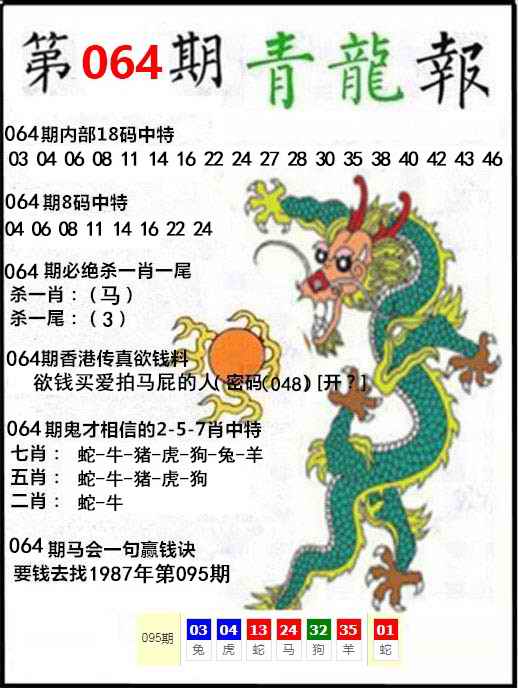 第064期 青龍報
064期内部18码中特
03 04 06 08 11 14 16 22 24 27 28 30 35 38 40 42 43 46
064期8码中特
04 06 08 11 14 16 22 24
064 期必绝杀一肖一尾
杀一肖：（马）
杀一尾：（3）
064期香港传真欲钱料
欲钱买爱拍马屁的人( 密码(048) [开？]
064期鬼才相信的2-5-7肖中特
七肖： 蛇-牛-猪-虎-狗-兔-羊
五肖： 蛇-牛-猪-虎-狗
二肖： 蛇-牛
064 期马会一句赢钱诀
要钱去找1987年第095期
095期 03 04 13 24 32 35 01
兔 虎 蛇 马 狗 羊 蛇